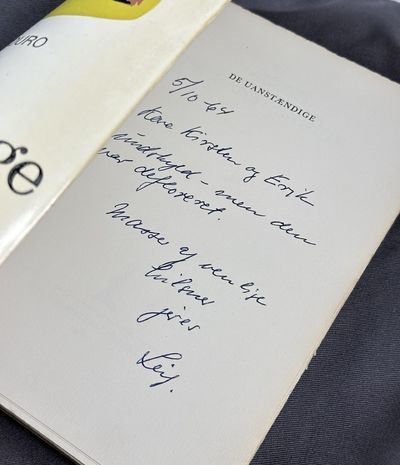 URO
ge
DE UANSTÆNDIGE
5/10 64
Kære Kirsten og Erik
undskyld – men den
var defloreret.
Masser af venlige
hilsner
jeres
Leif.